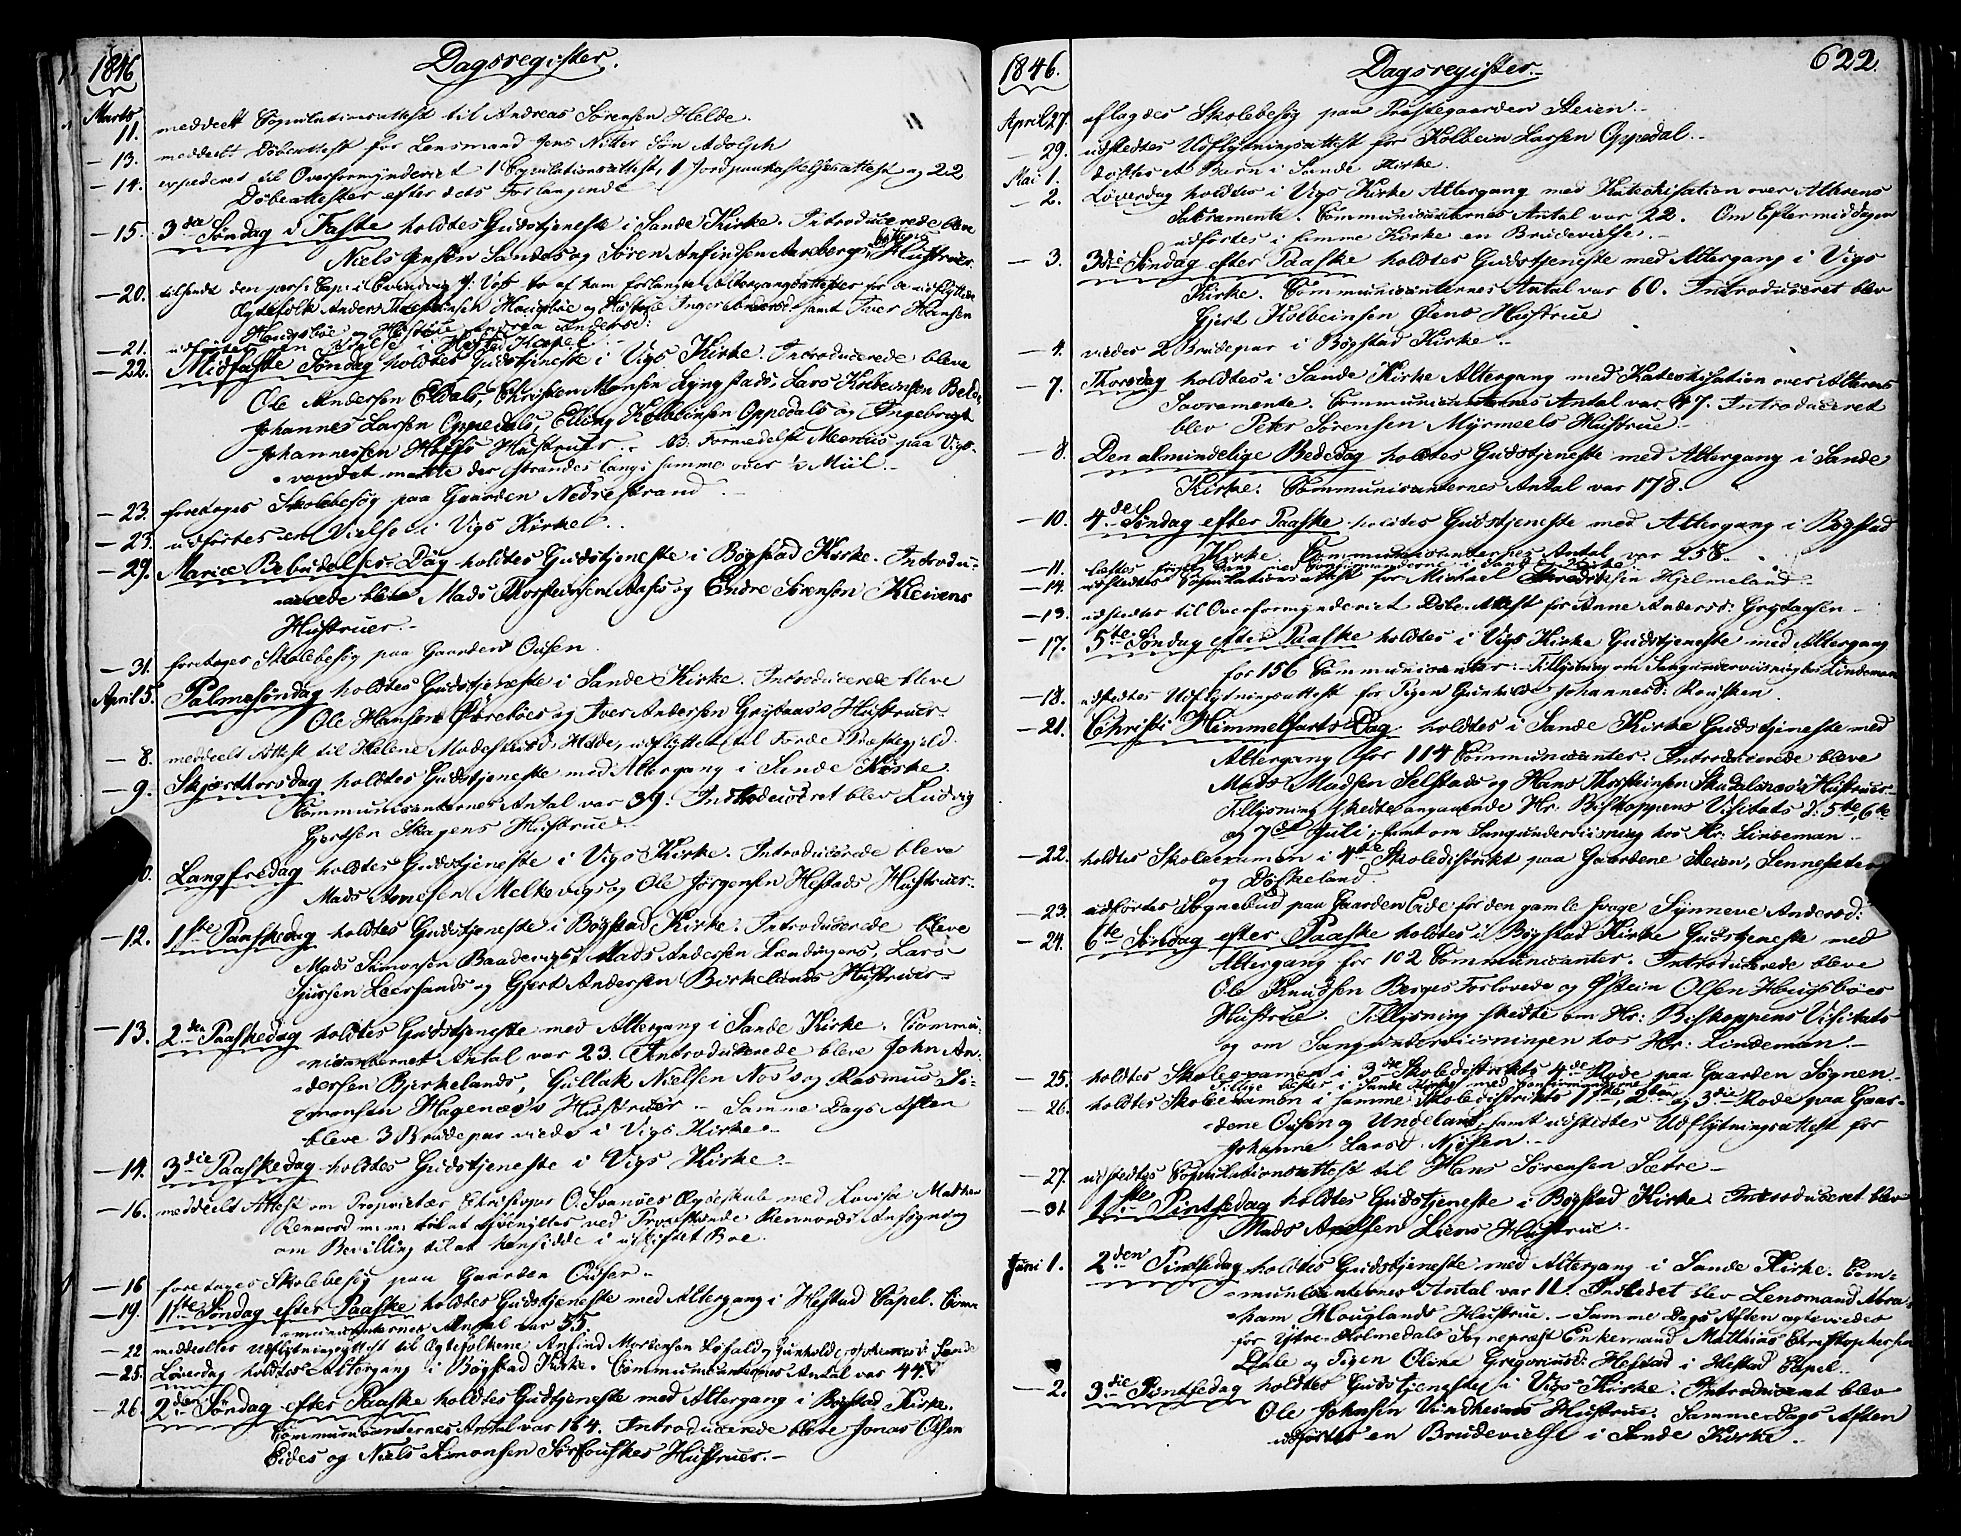 1846
Dagsregister.
Marts
11. meddeelt Copulationsattest til Andreas Sørensen Helde.
— 13. meddeelt Døbeattest for Lensmand Jens Nitter Søn Adolph
— 14. expederet til Overformynderiet 1 Copulationsattest, 1 Jordpaakastelsesattest og 22
Døbeattester efter dets Forlangende
— 15. 3die Søndag i Faste holdtes Gudstjeneste i Sande Kirke. Introducerede bleve
Niels Jensen Sandes og Søren Anfindsen Hustruer.
— 20. tilsendt den pers: Cap: i Evindvig Voss to af ham forlangte Altergangsattester for de udflyttede
Ægtefolk Anders Hougsbøe og Hustrue Inger Andersd: samt Iver Hansen
Hougsbøe og Hustrue Andersd:
— 21. udførtes en Vielse i Hestad Kapel
— 22. Midfaste Søndag holdtes Gudstjeneste i Vigs Kirke. Introducerede bleve
Ole Andersen Eldals, Christen Monsen Lyngstads, Lars Kolbeinsen
Johannes Larsen Oppedals, Elling Kolbeinsen Oppedals og Ingebrigt
Johannessen Hoffs Hustruer. B. Formedelst Meenviis paa Vigs-
vandet maatte der strandes langs samme over ½ Miil.
— 23. foretoges Skolebesøg paa Gaarden Nedrestrand.
— 23. udførtes en Vielse i Vigs Kirke.
— 29. Mariæ Bebudelses-Dag holdtes Gudstjeneste i Bøgstad Kirke. Introdu-
cerede bleve Mads Thorsteinsen Aases og Endre Sørensen Kleivens
Hustruer.
— 31. foretoges Skolebesøg paa Gaarden Ousen.
April 5. Palmesøndag holdtes Gudstjeneste i Sande Kirke. Introducerede bleve
Ole Hansen og Iver Andersen Hustruer.
— 8. meddeelt Attest til Helene Madsd: Helde, udflyttet til Førde Præstegjeld
— 9. Skjærthorsdag holdtes Gudstjeneste med Altergang i Sande Kirke.
Communicanternes Antal var 39. Introduceret blev Ludvig
Gjertsen Skagens Hustrue.
0. Langfredag holdtes Gudstjeneste i Vigs Kirke. Introducerede bleve
Mads Arnesen Melkevigs og Ole Jørgensen Hestads Hustruer.
— 12. 1ste Paaskedag holdtes Gudstjeneste i Bøgstad Kirke. Introducerede bleve
Mads Simonsen Mads Andersen Lars
Sjursen Leersands og Gjert Andersen Birkelands Hustruer.
— 13. 2den Paaskedag holdtes Gudstjeneste med Altergang i Sande Kirke. Commu-
nicanternes Antal var 23. Introducerede bleve John An-
dersen Bjerkelands, Gullak Nielsen Nos's og Rasmus Si-
monsen Hagenæs's Hustruer — Samme Dags Aften
bleve 3 Brudepar viede i Vigs Kirke.
— 14. 3die Paaskedag holdtes Gudstjeneste i Vigs Kirke.
— 16. meddeelt Attest om Proprietær O. Svanøes Ægteskab med Lovise
Rennord m: m: til at benyttes ved Rennords Ansøgning
om Bevilling til at hensidde i uskiftet Boe.
— 16 foretoges Skolebesøg paa Gaarden Ousen.
— 19. 1ste Søndag efter Paaske holdtes Gudstjeneste med Altergang i Hestad Capel. Com-
municanternes Antal var 55.
— 22 meddeeltes Udflytningsattest til Ægtefolkene Anfind Mortensen og Gunhild i Sande
— 25. Løverdag holdtes Altergang i Bøgstad Kirke. Communicanternes Antal var 44.
— 26. 2den Søndag efter Paaske holdtes Gudstjeneste med Altergang i Bøgstad Kirke.
Communicanternes Antal var 164. Introducerede bleve Jonas Olsen
Eides og Niels Simonsen Hustruer.
1846.
Dagsregister.
622.
April 27. aflagdes Skolebesøg paa Præstegaarden Steien.
— 29. udstedtes Udflytningsattest for Kolbein Larsen Oppedal.
Mai 1. døbtes et Barn i Sande Kirke.
— 2. Løverdag holdtes i Vigs Kirke Altergang med Katechisation over Altrens
Sacramente. Communicanternes Antal var 22. Om Eftermiddagen
udførtes i samme Kirke en Brudevielse.
— 3. 3die Søndag efter Paaske holdtes Gudstjeneste med Altergang i Vigs
Kirke. Communicanternes Antal var 60. Introduceret blev
Gjert Kolbeinsen Øens Hustrue
— 4. viedes 2 Brudepar i Bøgstad Kirke.
— 7. Thorsdag holdtes i Sande Kirke Altergang med Katechisation over Alterens
Sacramente. Communicanternes Antal var 47. Introduceret
blev Peter Sørensen Myrmeels Hustrue.
— 8. Den almindelige Bededag holdtes Gudstjeneste med Altergang i Sande
Kirke. Communicanternes Antal var 178.
— 10. 4de Søndag efter Paaske holdtes Gudstjeneste med Altergang i Bøgstad
Kirke. Communicanternes Antal var 258.
— 11. første Gang med Confirmanderne i Sande Kirke.
— 14. udstedtes Copulationsattest for Michael Hjelmeland.
— 13. udstedtes til Overformynderiet Døbe-Attest for Anne Andersd:
— 17. 5te Søndag efter Paaske holdtes i Vigs Kirke Gudstjeneste med Altergang
for 156 Communicanter. Tillysning om Sangunderviisning hos Lindeman
— 18. udstedtes Udflytningsattest for Pigen Gunhilde Johannesd:
— 21. Christi Himmelfarts-Dag holdtes i Sande Kirke Gudstjeneste med
Altergang for 114 Communicanter. Introducerede bleve
Mads Madsen Selstads og Hans Thorsteinsen Hustruer.
Tillysning skedte angaaende Hr. Biskoppens Visitats d: 5te, 6te
og 7de Juli, samt om Sangunderviisning hos Hr: Lindeman.
— 22. holdtes Skoleexamen i 4de Skoledistrikt paa Gaardene Steien, Senneseter
og Døskeland.
— 23. udførtes Sognebud paa Gaarden Eide for den gamle svage Synneve Andersd:
— 24. 6te Søndag efter Paaske holdtes i Bøgstad Kirke Gudstjeneste med
Altergang for 102 Communicanter. Introducerede bleve
Ole Knudsen Berges Forlovede og Østein Olsen Hougsbøes
Hustrue. Tillysning skedte om Hr: Biskoppens Visitats
og om Sangunderviisningen hos Hr: Lindeman.
— 25. holdtes Skoleexamen i 3die Skoledistrikts 4de Rode paa Gaarden Søgnen.
Tillige læstes i Sande Kirke med Confirmanderne
— 26. holdtes Skoleexamen i samme Skoledistrikts 1ste, 2den og 3die Rode paa Gaar-
dene Ousen og Undeland, samt udstedtes Udflytningsattest for
Johanne Larsd:
— 27. udstedtes Copulationsattest til Hans Sørensen Sætre
— 31 1ste Pintsedag holdtes Gudstjeneste i Bøgstad Kirke. Introduceret blev
Mads Axelsen Liens Hustrue.
Juni 1. 2den Pintsedag holdtes Gudstjeneste med Altergang i Sande Kirke. Com-
municanternes Antal var 11. Indledet blev Lensmand Abra-
ham Houglands Hustrue. — Samme Dags Aften ægteviedes
for Ytre-Holmedals Sognepræst Enkemand Mathias Christophersen
Dale og Pigen Olina Gregoriusd: Hestad i Hestad Capel.
— 2. 3die Pintsedag holdtes Gudstjeneste i Vigs Kirke. Introduceret blev
Ole Johnsen Vindheims Hustrue. Sammedags Aften
udførtes en Brudevielse i Sande Kirke.